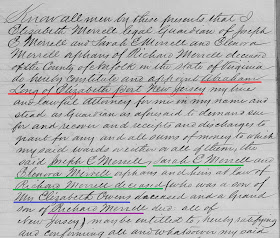 Know all men by these presents that I
Elizabeth Merrell legal Guardian of Joseph
C Merrell and Sarah C Merrell and Elenora
Merrell orphans of Richard Merrell deceased
of the County of Norfolk in the State of Virginia
do hereby Constitute and appoint Abraham
Long of Elizabeth Port New Jersey my true
and lawful Attorney for me in my name and
stead as Guardian as aforesaid to demand sue
for and recover and receipts and discharges to
grant for any and all sums of money to which
my said wards or either or all of them, the
said Joseph C Merrell Sarah C Merrell and
Elenora Merrell orphans and heirs at law of
Richard Merrell deceased (who was a son of
Mrs Elizabeth Owens deceased and a Grand
son of Richard Merrell decd. all of
New Jersey) may be entitled to, hereby ratifying
and confirming all and whatsoever my said